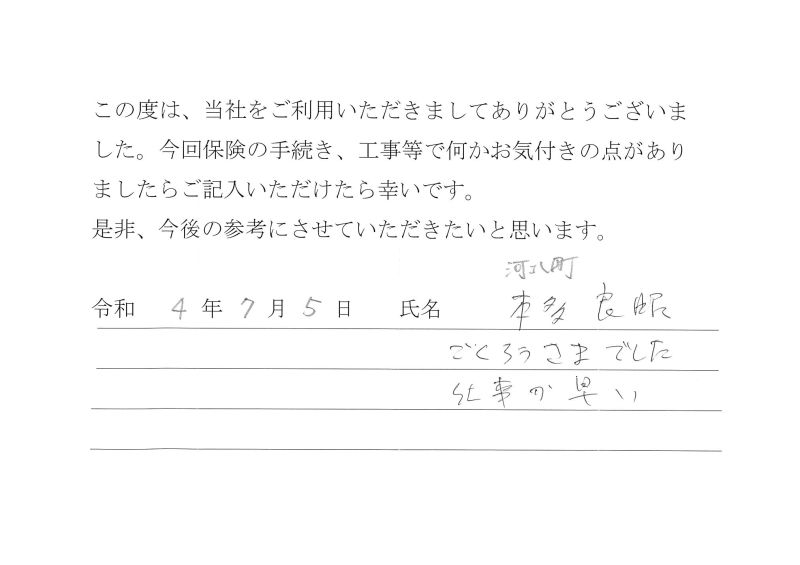 この度は、当社をご利用いただきましてありがとうございま
した。今回保険の手続き、工事等で何かお気付きの点があり
ましたらご記入いただけたら幸いです。
是非、今後の参考にさせていただきたいと思います。
町
令和 4 年 7 月 5 日 氏名 本多 良昭
ごくろうさまでした
仕事が早い